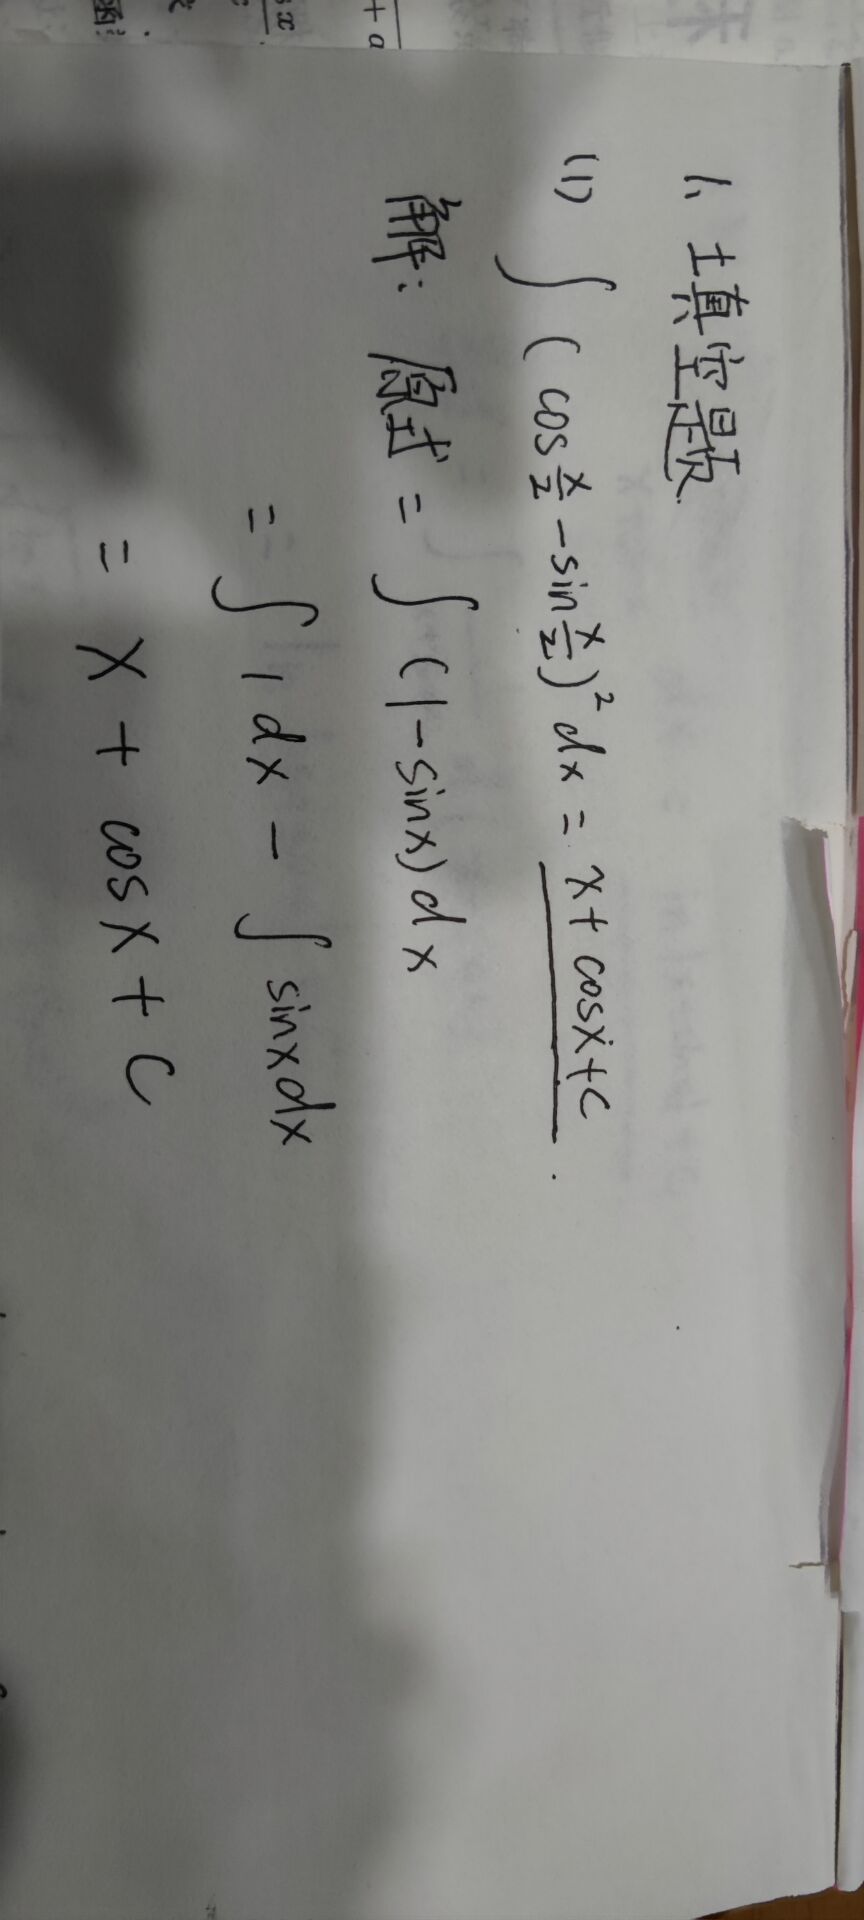 1、填空题
(1) ∫ (cos x/2 - sin x/2)² dx = x + cosx + C .
解: 原式 = ∫ (1 - sinx) dx
= ∫ 1 dx - ∫ sinx dx
= x + cosx + C